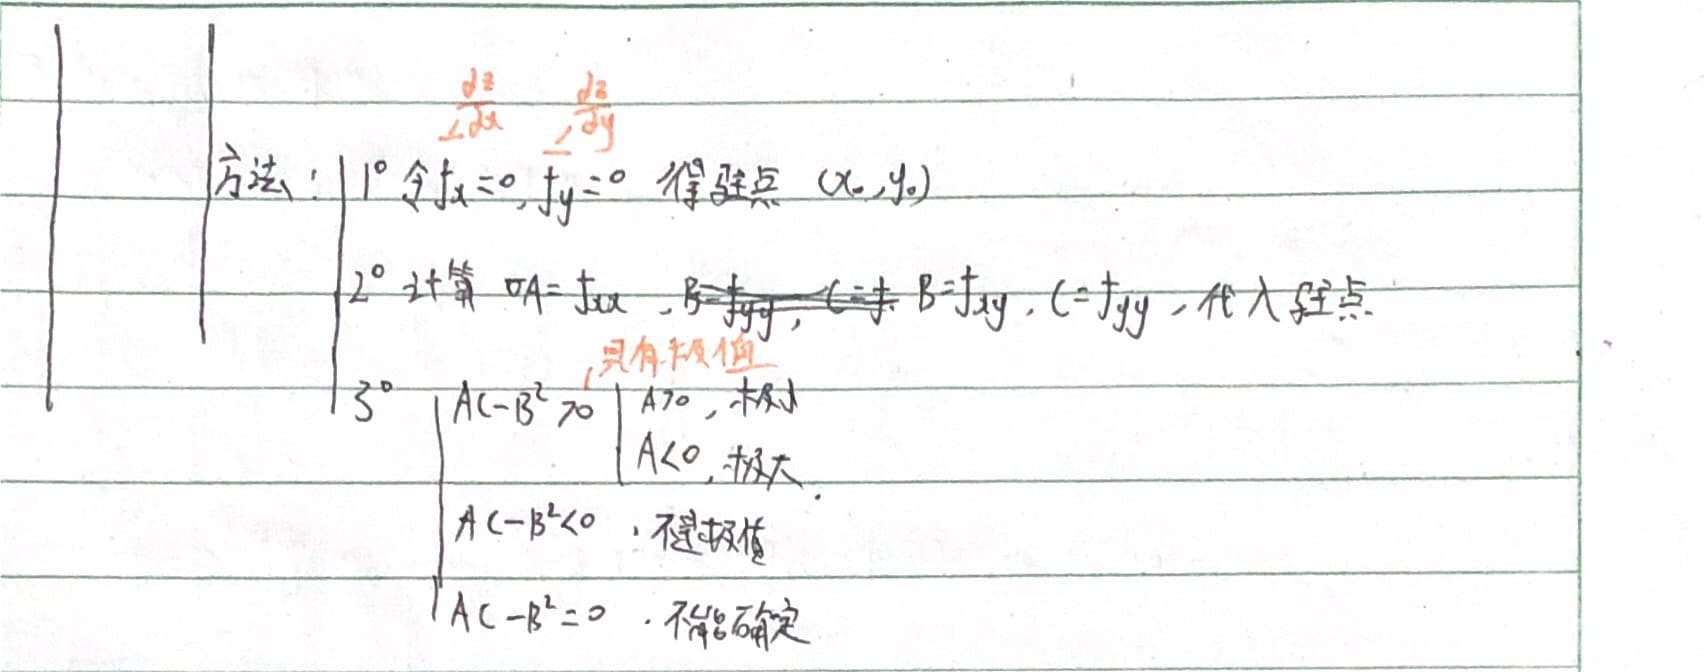 ∂z/∂x ∂z/∂y
方法: 1° 令fx=0, fy=0 得驻点 (x₀,y₀)
2° 计算 A=fxx, B=fyy, C=f B=fxy, C=fyy, 代入驻点
具有极值
3° AC-B²>0 A>0, 极小
A<0, 极大.
AC-B²<0, 不是极值
AC-B²=0, 不能确定